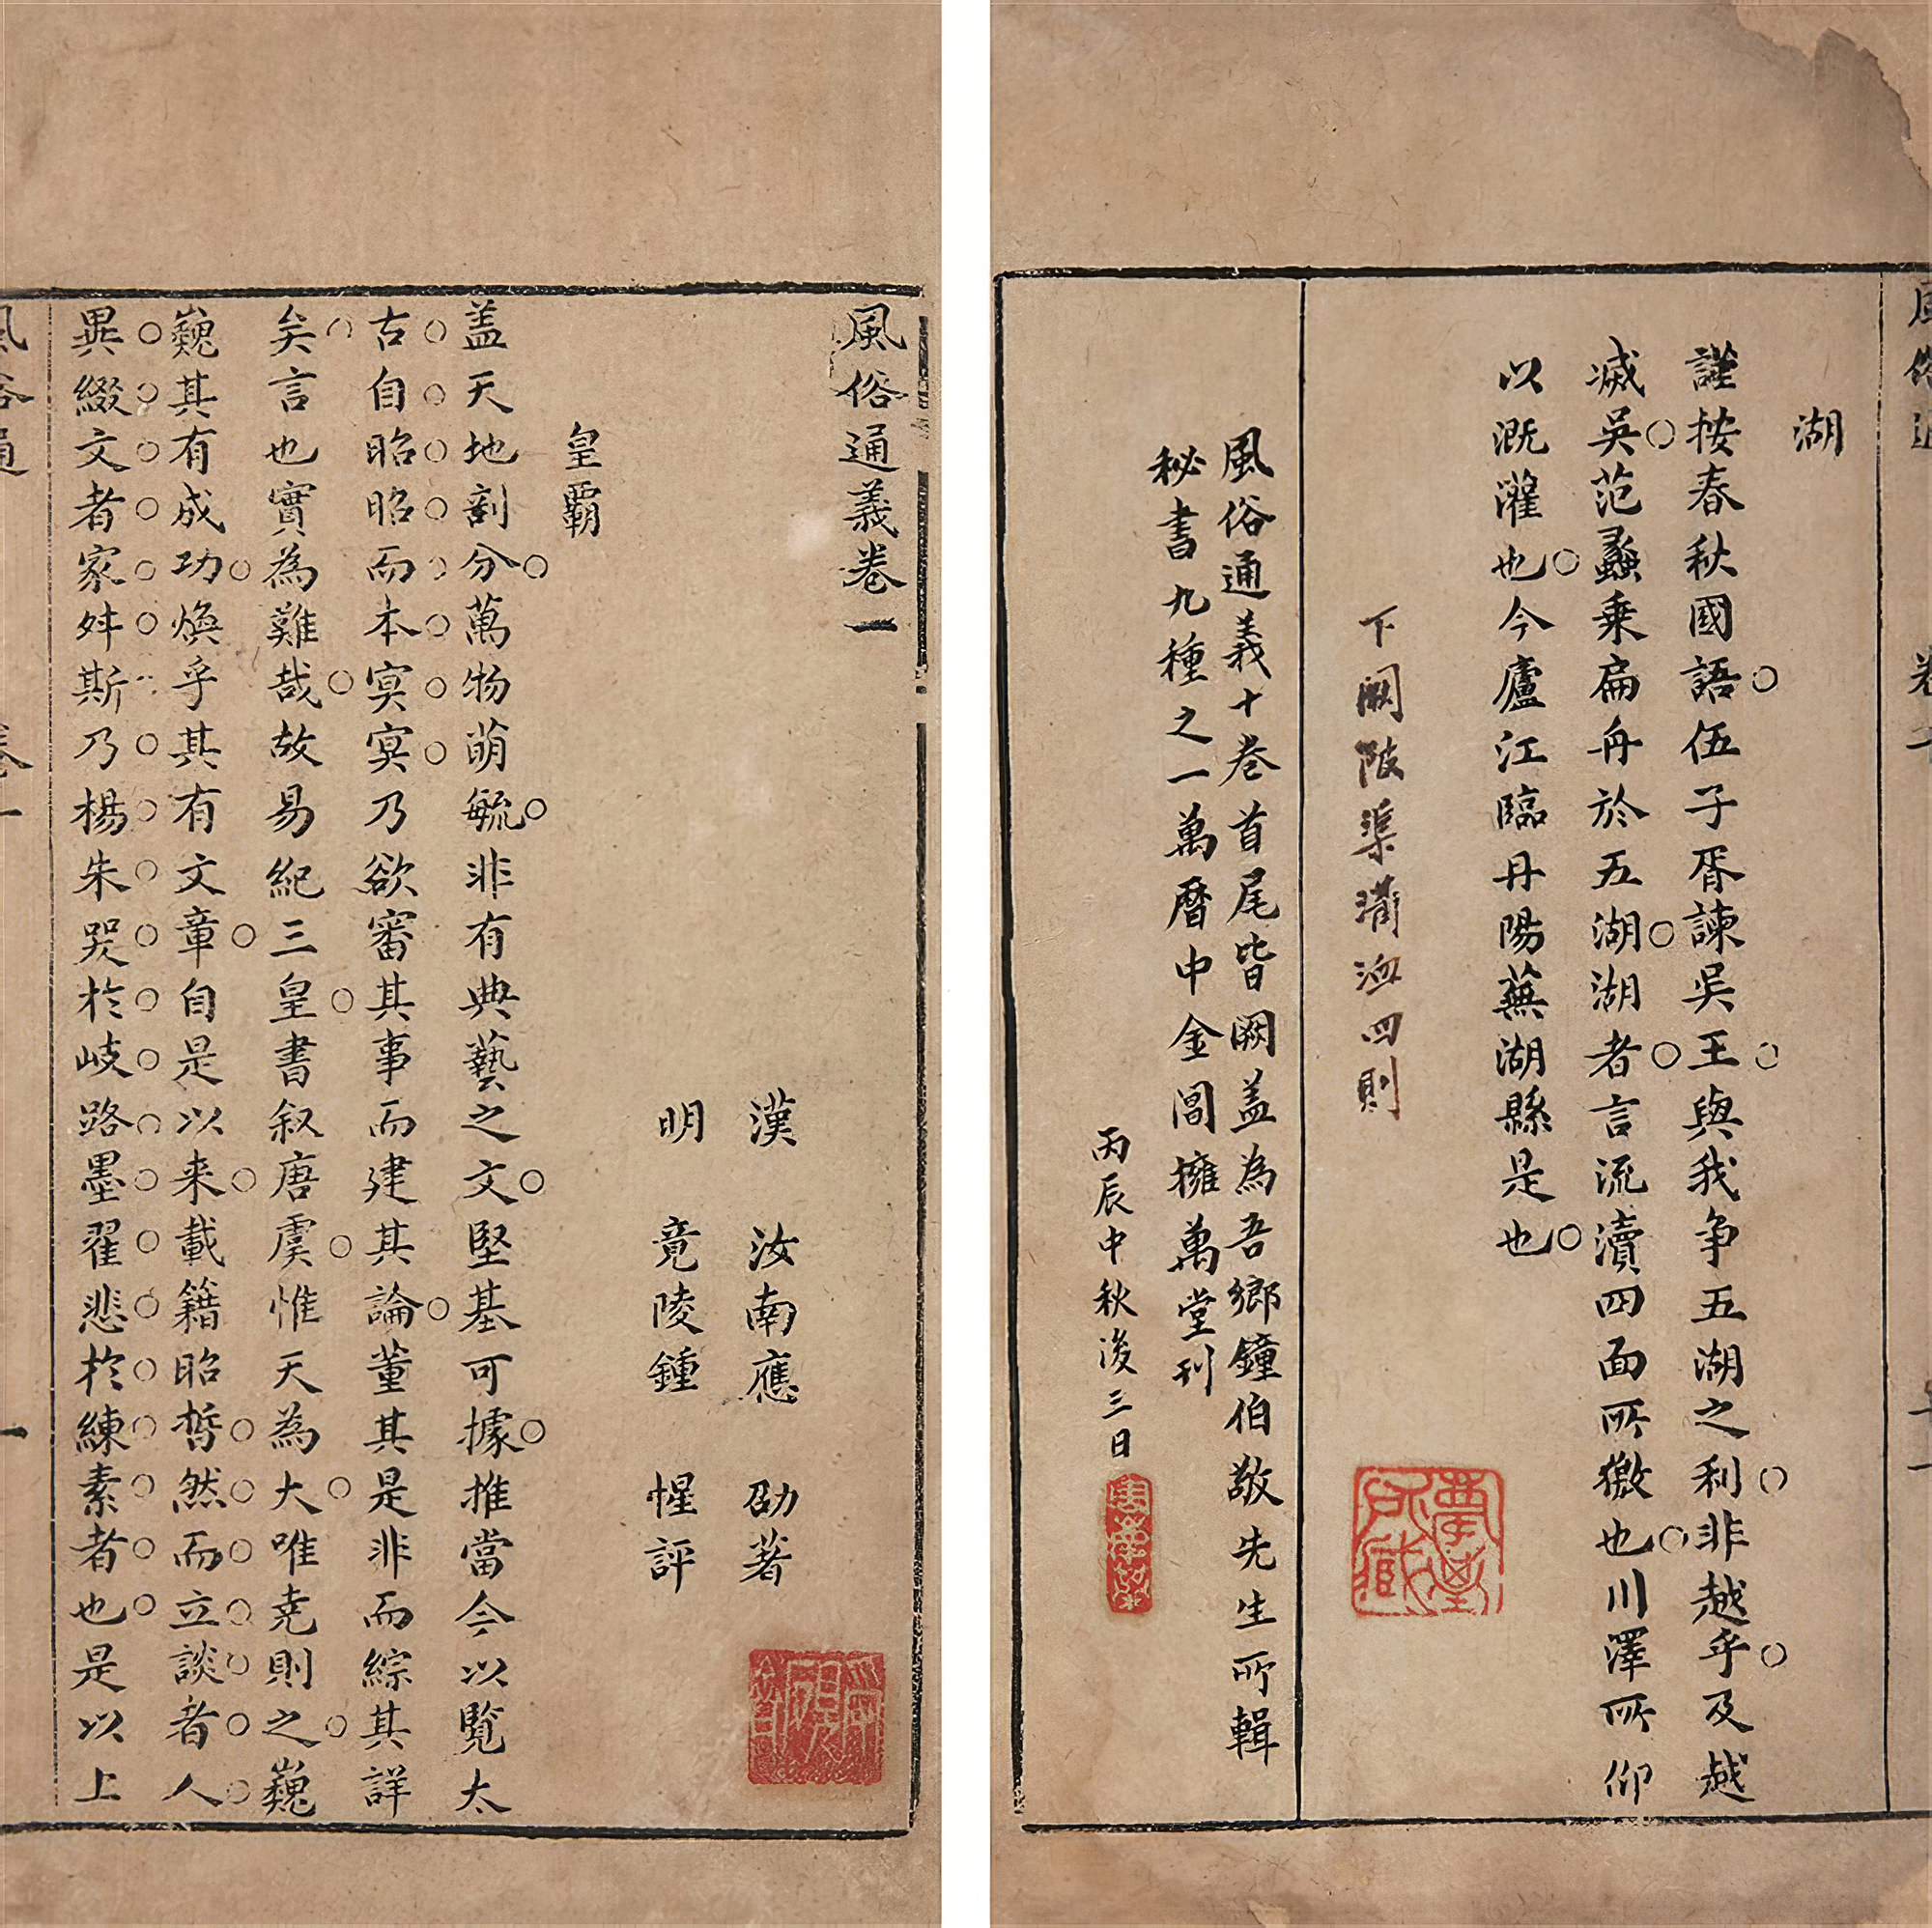 風俗通義卷一
漢 汝南應 劭著
明 竟陵鍾 惺評
皇霸
蓋天地剖分萬物萌毓非有典藝之文堅基可據推當今以覽太
古自昭昭而本冥冥乃欲審其事而建其論董其是非而綜其詳
矣言也實為難哉故易紀三皇書叙唐虞惟天為大唯堯則之巍
巍其有成功煥乎其有文章自是以来載籍昭晢然而立談者人
異綴文者家舛斯乃楊朱哭於岐路墨翟悲於練素者也是以上
風俗通
卷一
一
湖
謹按春秋國語伍子胥諫吳王與我争五湖之利非越乎及越
滅吳范蠡乗扁舟於五湖湖者言流瀆四面所獥也川澤所仰
以溉灌也今廬江臨丹陽蕪湖縣是也
下闕陂渠溝洫四則
風俗通義十卷首尾皆闕蓋為吾鄉鐘伯敬先生所輯
秘書九種之一萬曆中金閶擁萬堂刊
丙辰中秋後三日
所藏